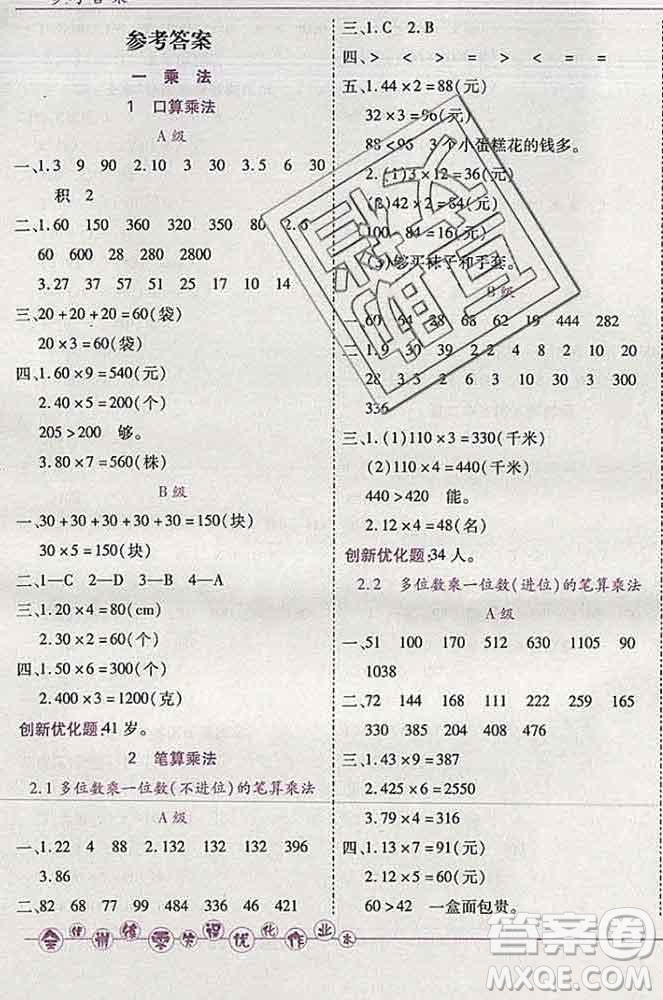 参考答案
一 乘 法
1 口算乘法
A 级
一、1.3 9 90 2.10 3 30 3.5 6 30
积 2
二、1.60 150 360 320 350 80 2.6
60 600 28 280 2800
3.27 37 57 51 25 17 10 14
三、20+20+20=60(袋)
20×3=60(袋)
四、1.60×9=540(元)
2.40×5=200(个)
205>200 够。
3.80×7=560(株)
B 级
一、30+30+30+30+30=150(块)
30×5=150(块)
二、1—C 2—D 3—B 4—A
三、1.20×4=80(cm)
2.30×2=60(个)
四、1.50×6=300(个)
2.400×3=1200(克)
创新优化题:41岁。
2 笔算乘法
2.1 多位数乘一位数(不进位)的笔算乘法
A 级
一、1.22 4 88 2.132 132 396
3.86
二、82 68 77 99 484 336 46 421
三、1.C 2.B
四、> < = > < = =
五、1.44×2=88(元)
32×3=96(元)
88<96 3个小蛋糕花的钱多。
2.(1)3×12=36(元)
(2)42×2=84(元)
100-84=16(元)
(3)够买袜子和手套。
B 级
一、60 64 28 68 62 19 444 282
二、1.9 30 39 2.2 4 8 2 10 20
28 3.3 2 6 10 30 3 300
336
三、1.(1)110×3=330(千米)
(2)110×4=440(千米)
440>420 能。
2.12×4=48(名)
创新优化题:34人。
2.2 多位数乘一位数(进位)的笔算乘法
A 级
一、51 100 170 512 630 1105 90
1038
二、72 144 168 1648 148 165
330 385 204 2040
三、1.43×9=387
2.425×6=2550
3.79×4=316
四、1.13×7=91(元)
2.12×5=60(元)
60>42 一盒面包贵。
优化作业本
答案圈
MXQE.COM